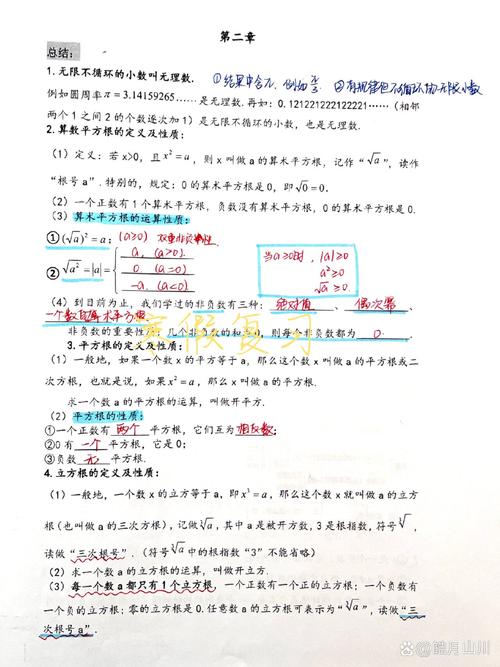 第二章
总结：
1.无限不循环的小数叫无理数. ①结果中含π, 例如π/2 ②有规律但不循环的无限小数
例如圆周率π=3.14159265……是无理数.再如：0.121221222122221……（相邻
两个1之间2的个数逐次加1）是无限不循环的小数，也是无理数.
2.算术平方根的定义及性质：
（1）定义：若x>0，且x²=a，则x叫做a的算术平方根，记作“√a”，读作
“根号a”.特别的，规定：0的算术平方根是0，即√0=0.
（2）一个正数有1个算术平方根，负数没有算术平方根，0的算术平方根是0.
（3）算术平方根的运算性质：
①(√a)²=a；(a≥0) 双重非负性.
②√a²=|a|={ a, (a>0).
0 (a=0)
-a, (a<0)
当a≥0时, |a|≥0
a²≥0
√a≥0.
（4）到目前为止，我们学过的非负数有三种：绝对值、偶次幂、
一个数的算术平方根.
非负数的重要性质：几个非负数的和为0，则每个非负数都为 0.
寒假复习
3.平方根的定义及性质：
（1）一般地，如果一个数x的平方等于a，那么这个数x叫做a的平方根或二
次方根，也就是说，如果x²=a，那么x叫做a的平方根.
求一个数a的平方根的运算，叫做开平方.
（2）平方根的性质：
①一个正数有 两个 平方根，它们互为 相反数；
②0有 一个 平方根，它是0；
③负数 无 平方根.
4.立方根的定义及性质：
（1）一般地，一个数x的立方等于a，即x³=a，那么这个数x就叫做a的立方
根（也叫做a的三次方根），记做∛a，其中a是被开方数，3是根指数，符号∛，
读做“三次根号”.（符号∛a中的根指数“3”不能省略）
（2）求一个数a的立方根的运算，叫做开立方.
（3）每一个数a都只有1个立方根，一个正数有一个正的立方根；一个负数有
一个负的立方根；零的立方根是0.任意数a的立方根可表示为“∛a”，读做“三
次根号a”.
@皓月山川